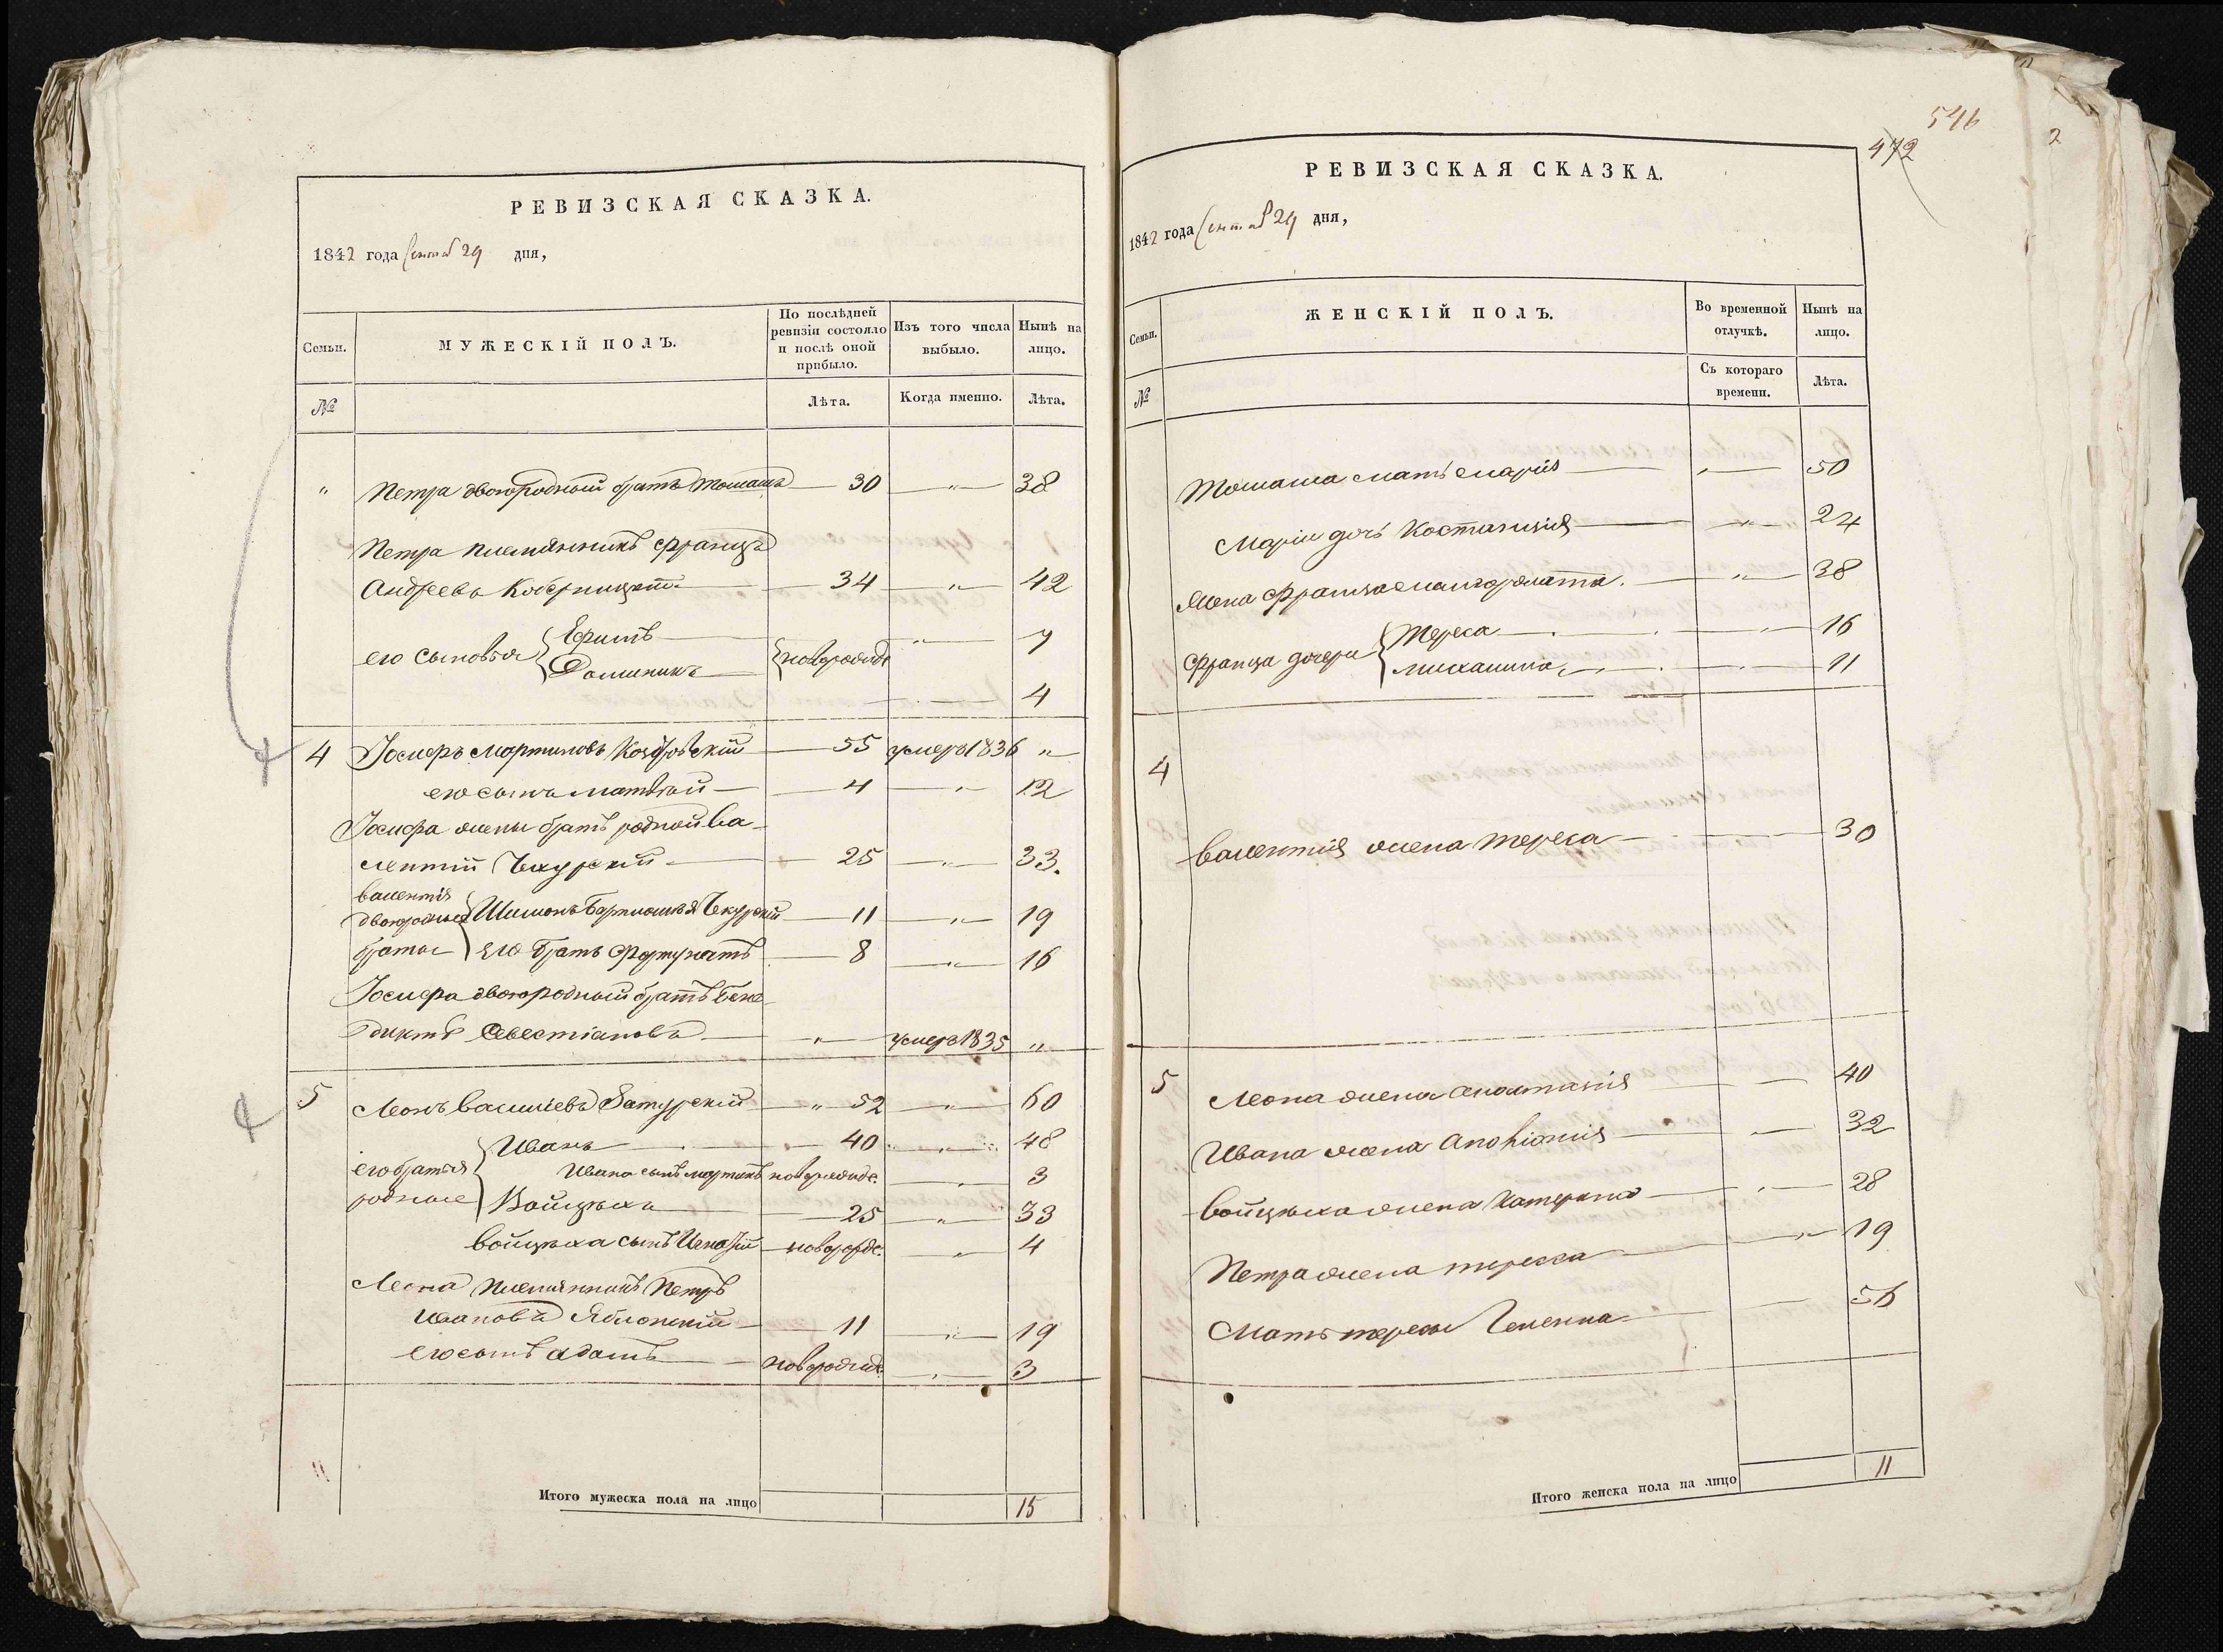 РЕВИЗСКАЯ СКАЗКА.
1842 года Сентяб 29 дня,
Семьи.
МУЖЕСКІЙ ПОЛЪ.
По послѣдней ревизіи состояло и послѣ оной прибыло.
Изъ того числа выбыло.
Нынѣ на лицо.
№
Лѣта.
Когда именно.
Лѣта.
" Петра двоюродный братъ Томашъ — 30 — " — 38
Петра племянникъ Францъ
Андреевъ — 34 — " — 42
его сыновья { — " — 7
Доминикъ — } новорожд — 4
4 Іосифъ Мартиновъ Козловскій — 55 умеръ 1836 "
его сынъ Матвѣй — 4 — " — 12
Іосифа жены братъ родной Ва-
лентій Чекурскій — 25 — " — 33.
Валентія
двоюродные { Шимонъ Чекурскій — 11 — " — 19
братья его братъ Фортунатъ — 8 — " — 16
Іосифа двоюродный братъ Бене-
диктъ Севестіановъ — " — умеръ 1835 "
5 Леонъ Василіевъ — " 52 — " — 60
Иванъ — 40 — " — 48
его братья { Ивана сынъ Мартинъ новорожде. — " — 3
родные Войцѣхъ — 25 — " — 33
Войцѣха сынъ Игнатій — новорожде. — " — 4
Леона племянникъ Петръ
Ивановъ Яблонскій — 11 — " — 19
его сынъ Адамъ — новорожде. — " — 3
Итого мужеска пола на лицо
15
546
472
2
РЕВИЗСКАЯ СКАЗКА.
1842 года Сентяб 29 дня,
Семьи.
ЖЕНСКІЙ ПОЛЪ.
Во временной отлучкѣ.
Нынѣ на лицо.
№
Съ котораго времени.
Лѣта.
Томаша мать Марія — " — 50
Маріи дочь Костанція — " — 24
Жена Франца Малгоржата. — " — 38
Франца дочери { Тереса — " — 16
Михалина — " — 11
4
Валентія жена Тереса — 30
5 Леона жена — 40
Ивана жена — 32
Войцѣха жена Катерина — " — 28
Петра жена Тереса — " — 19
Мать Тересы — 56
Итого женска пола на лицо
11